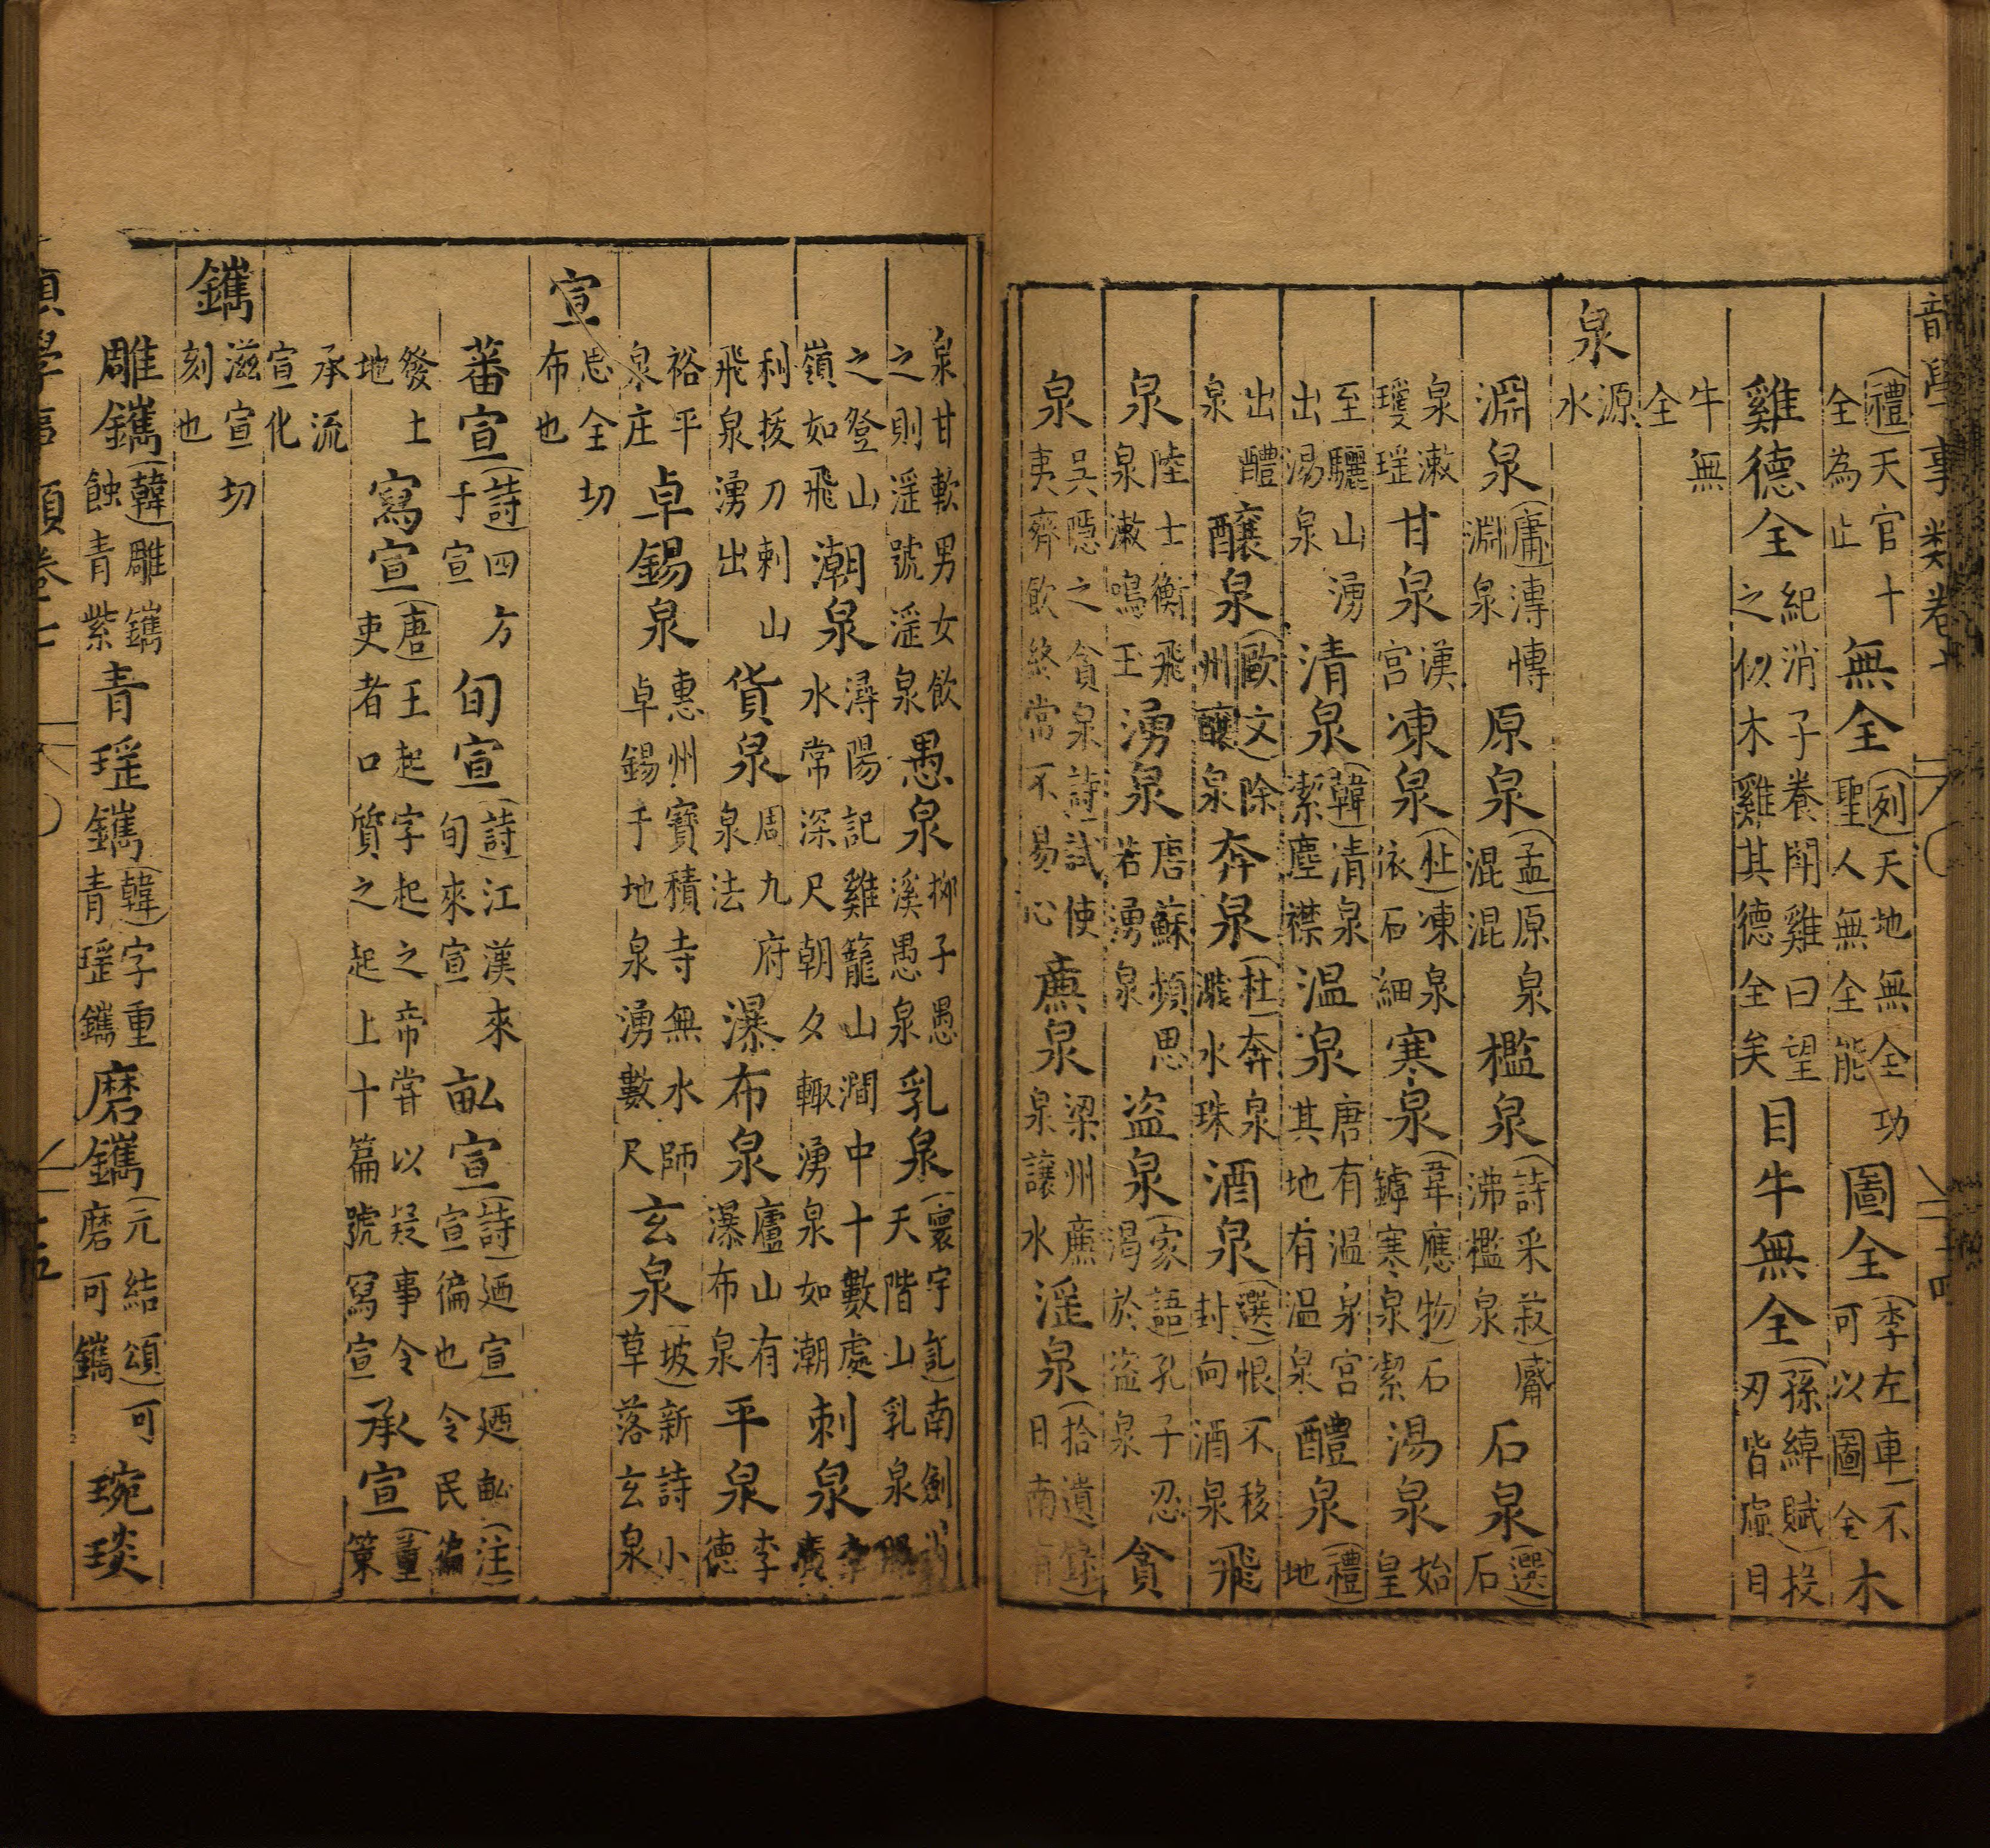 韻學事類卷七
十四
禮天官十全為止無全列天地無全功聖人無全能圖全李左車不可以圖全木
雞德全紀消子養鬥雞曰望之似木雞其德全矣目牛無全孫綽賦投刃皆虛目
牛無全
泉源水
淵泉庸溥愽淵泉原泉孟原泉混混檻泉詩采菽觱沸檻泉石泉選石
泉漱瓊瑶甘泉漢宮凍泉杜凍泉依石細寒泉韋應物石鏬寒泉潔湯泉始皇
至驪山湧出湯泉清泉韓清泉潔塵襟温泉唐有温泉宮其地有温泉醴泉禮地
出醴泉釀泉歐文除州釀泉奔泉杜奔泉濺水珠酒泉選恨不移封向酒泉飛
泉陸士衡飛泉漱鳴玉湧泉唐蘇頲思若湧泉盜泉家語孔子忍渴於盜泉貪
泉吳隠之貪泉詩試使夷齊飲終當不易心亷泉梁州亷泉讓水淫泉拾遺錄日南有
泉甘軟男女飲之則淫號淫泉愚泉柳子愚溪愚泉乳泉寰宇記南劍天階山乳泉
之登山嶺如飛潮泉潯陽記雞籠山澗中十數處水常深尺朝夕輒湧泉如潮刺泉李廣
利拔刀刺山飛泉湧出貨泉周九府泉法瀑布泉廬山有瀑布泉平泉李德
裕平泉庄卓錫泉惠州寶積寺無水師卓錫于地泉湧數尺玄泉坡新詩小草落玄泉
宣思全切布也
蕃宣詩四方于宣旬宣詩江漢來旬來宣畝宣詩廼宣廼畝注宣徧也令民徧
發土地寫宣唐王起字起之帝嘗以疑事令吏者口質之起上十篇號寫宣承宣董策
承流宣化
鐫滋宣切刻也
雕鐫韓雕鐫蝕青紫青瑶鐫韓字重青瑶鐫磨鐫元結頌可磨可鐫琬琰